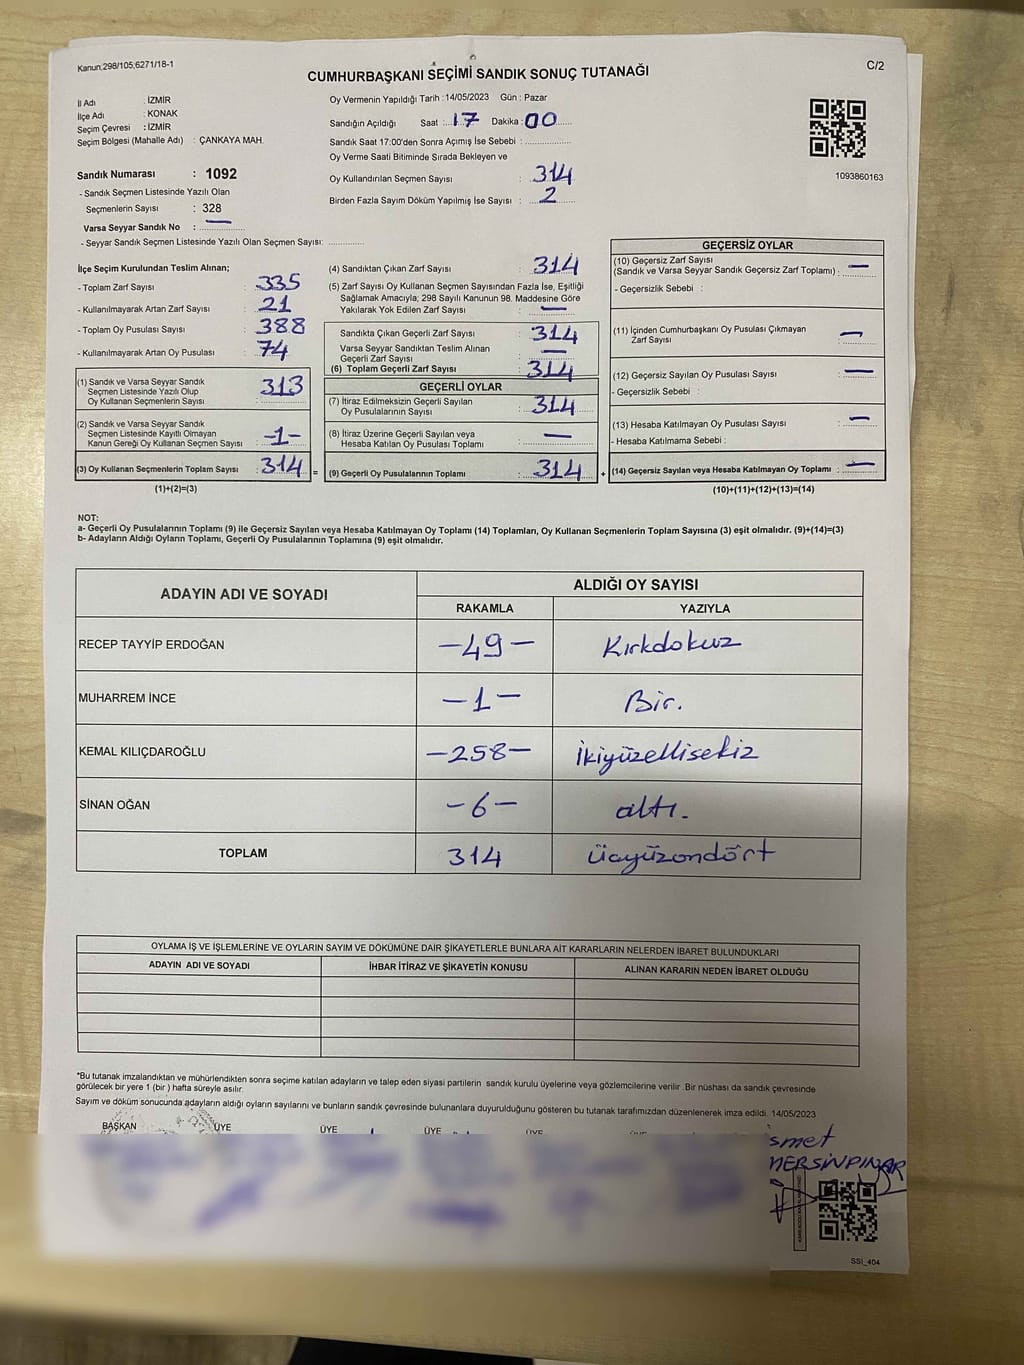 Kanun,298/105,6271/18-1
C/2
CUMHURBAŞKANI SEÇİMİ SANDIK SONUÇ TUTANAĞI
İl Adı : İZMİR
İlçe Adı : KONAK
Seçim Çevresi : İZMİR
Seçim Bölgesi (Mahalle Adı) : ÇANKAYA MAH.
Sandık Numarası : 1092
- Sandık Seçmen Listesinde Yazılı Olan
Seçmenlerin Sayısı : 328
Varsa Seyyar Sandık No : —
- Seyyar Sandık Seçmen Listesinde Yazılı Olan Seçmen Sayısı: ............
Oy Vermenin Yapıldığı Tarih : 14/05/2023 Gün : Pazar
Sandığın Açıldığı Saat : 17 Dakika : 00
Sandık Saat 17:00'den Sonra Açımış İse Sebebi : ...............
Oy Verme Saati Bitiminde Sırada Bekleyen ve
Oy Kullandırılan Seçmen Sayısı : 314
Birden Fazla Sayım Döküm Yapılmış İse Sayısı : 2
1093860163
İlçe Seçim Kurulundan Teslim Alınan;
- Toplam Zarf Sayısı : 335
- Kullanılmayarak Artan Zarf Sayısı : 21
- Toplam Oy Pusulası Sayısı : 388
- Kullanılmayarak Artan Oy Pusulası : 74
(1) Sandık ve Varsa Seyyar Sandık
Seçmen Listesinde Yazılı Olup
Oy Kullanan Seçmenlerin Sayısı : 313
(2) Sandık ve Varsa Seyyar Sandık
Seçmen Listesinde Kayıtlı Olmayan
Kanun Gereği Oy Kullanan Seçmen Sayısı : -1-
(3) Oy Kullanan Seçmenlerin Toplam Sayısı : 314 =
(1)+(2)=(3)
(4) Sandıktan Çıkan Zarf Sayısı : 314
(5) Zarf Sayısı Oy Kullanan Seçmen Sayısından Fazla İse, Eşitliği
Sağlamak Amacıyla; 298 Sayılı Kanunun 98. Maddesine Göre
Yakılarak Yok Edilen Zarf Sayısı : —
Sandıkta Çıkan Geçerli Zarf Sayısı : 314
Varsa Seyyar Sandıktan Teslim Alınan
Geçerli Zarf Sayısı : —
(6) Toplam Geçerli Zarf Sayısı : 314
GEÇERLİ OYLAR
(7) İtiraz Edilmeksizin Geçerli Sayılan
Oy Pusulalarının Sayısı : 314
(8) İtiraz Üzerine Geçerli Sayılan veya
Hesaba Katılan Oy Pusulası Toplamı : —
(9) Geçerli Oy Pusulalarının Toplamı : 314 +
GEÇERSİZ OYLAR
(10) Geçersiz Zarf Sayısı
(Sandık ve Varsa Seyyar Sandık Geçersiz Zarf Toplamı) : —
- Geçersizlik Sebebi :
(11) İçinden Cumhurbaşkanı Oy Pusulası Çıkmayan
Zarf Sayısı : —
(12) Geçersiz Sayılan Oy Pusulası Sayısı : —
- Geçersizlik Sebebi :
(13) Hesaba Katılmayan Oy Pusulası Sayısı : —
- Hesaba Katılmama Sebebi :
(14) Geçersiz Sayılan veya Hesaba Katılmayan Oy Toplamı : —
(10)+(11)+(12)+(13)=(14)
NOT:
a- Geçerli Oy Pusulalarının Toplamı (9) ile Geçersiz Sayılan veya Hesaba Katılmayan Oy Toplamı (14) Toplamları, Oy Kullanan Seçmenlerin Toplam Sayısına (3) eşit olmalıdır. (9)+(14)=(3)
b- Adayların Aldığı Oyların Toplamı, Geçerli Oy Pusulalarının Toplamına (9) eşit olmalıdır.
ADAYIN ADI VE SOYADI ALDIĞI OY SAYISI
RAKAMLA YAZIYLA
RECEP TAYYİP ERDOĞAN -49- Kırkdokuz
MUHARREM İNCE -1- Bir.
KEMAL KILIÇDAROĞLU -258- İkiyüzellisekiz
SİNAN OĞAN -6- altı.
TOPLAM 314 Üçyüzondört
OYLAMA İŞ VE İŞLEMLERİNE VE OYLARIN SAYIM VE DÖKÜMÜNE DAİR ŞİKAYETLERLE BUNLARA AİT KARARLARIN NELERDEN İBARET BULUNDUKLARI
ADAYIN ADI VE SOYADI İHBAR İTİRAZ VE ŞİKAYETİN KONUSU ALINAN KARARIN NEDEN İBARET OLDUĞU
*Bu tutanak imzalandıktan ve mühürlendikten sonra seçime katılan adayların ve talep eden siyasi partilerin sandık kurulu üyelerine veya gözlemcilerine verilir .Bir nüshası da sandık çevresinde
görülecek bir yere 1 (bir ) hafta süreyle asılır.
Sayım ve döküm sonucunda adayların aldığı oyların sayılarını ve bunların sandık çevresinde bulunanlara duyurulduğunu gösteren bu tutanak tarafımızdan düzenlenerek imza edildi. 14/05/2023
BAŞKAN ÜYE ÜYE ÜYE ÜYE
smet
MERSİNPINAR
SSI_404